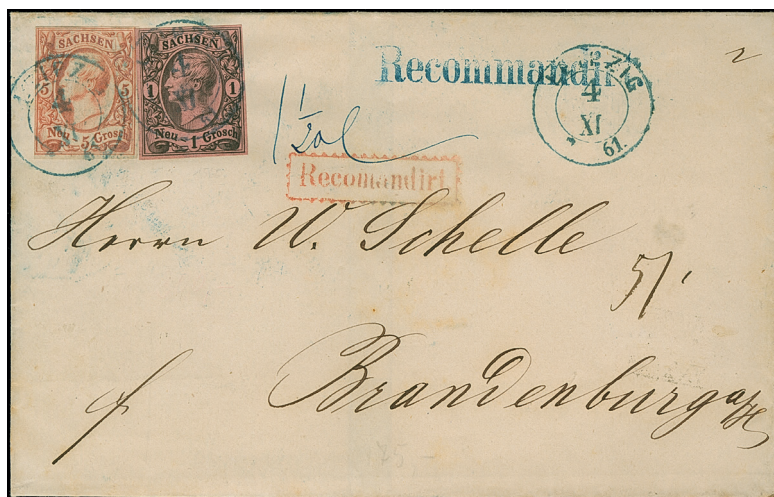 SACHSEN
5 5
Neu 5 Grosch
SACHSEN
1 1
Neu - 1 Grosch
Recommandirt
4
XI
61
Recomandirt
Herrn W. Schelle
5/
f Brandenburg a/H